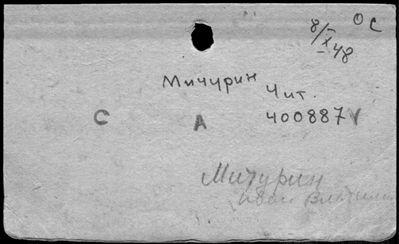 ОС
8/X 48
Мичурин
Чит.
С А 400887 V
Мичурин
Иван